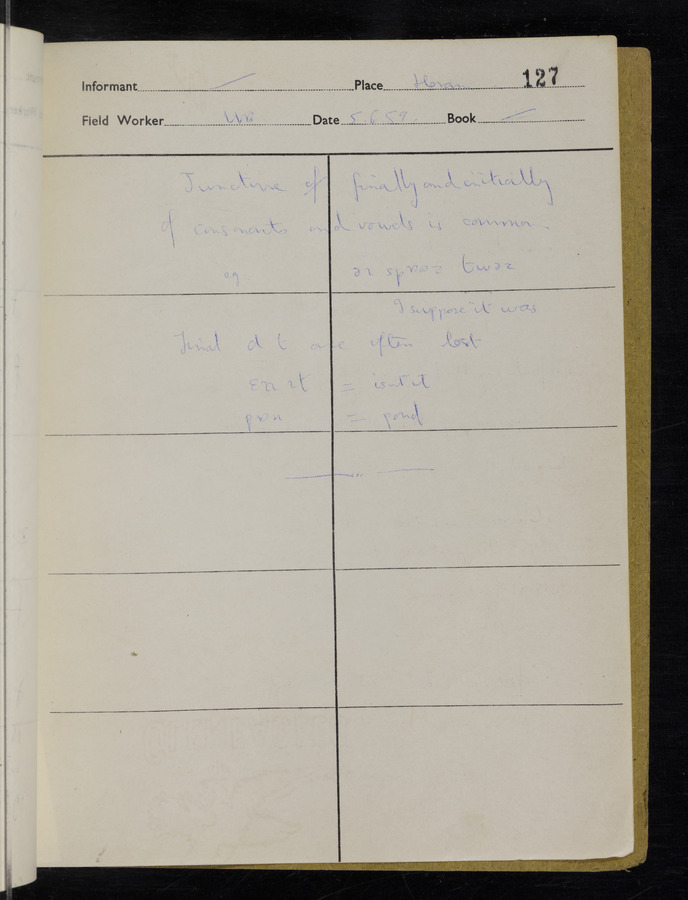 Informant Place 127
Field Worker Date 5.6.57 Book
Juncture of finally and initially
of consonants and vowels is common.
eg
I suppose it was
Final d t are often lost
= isn't it
= pond